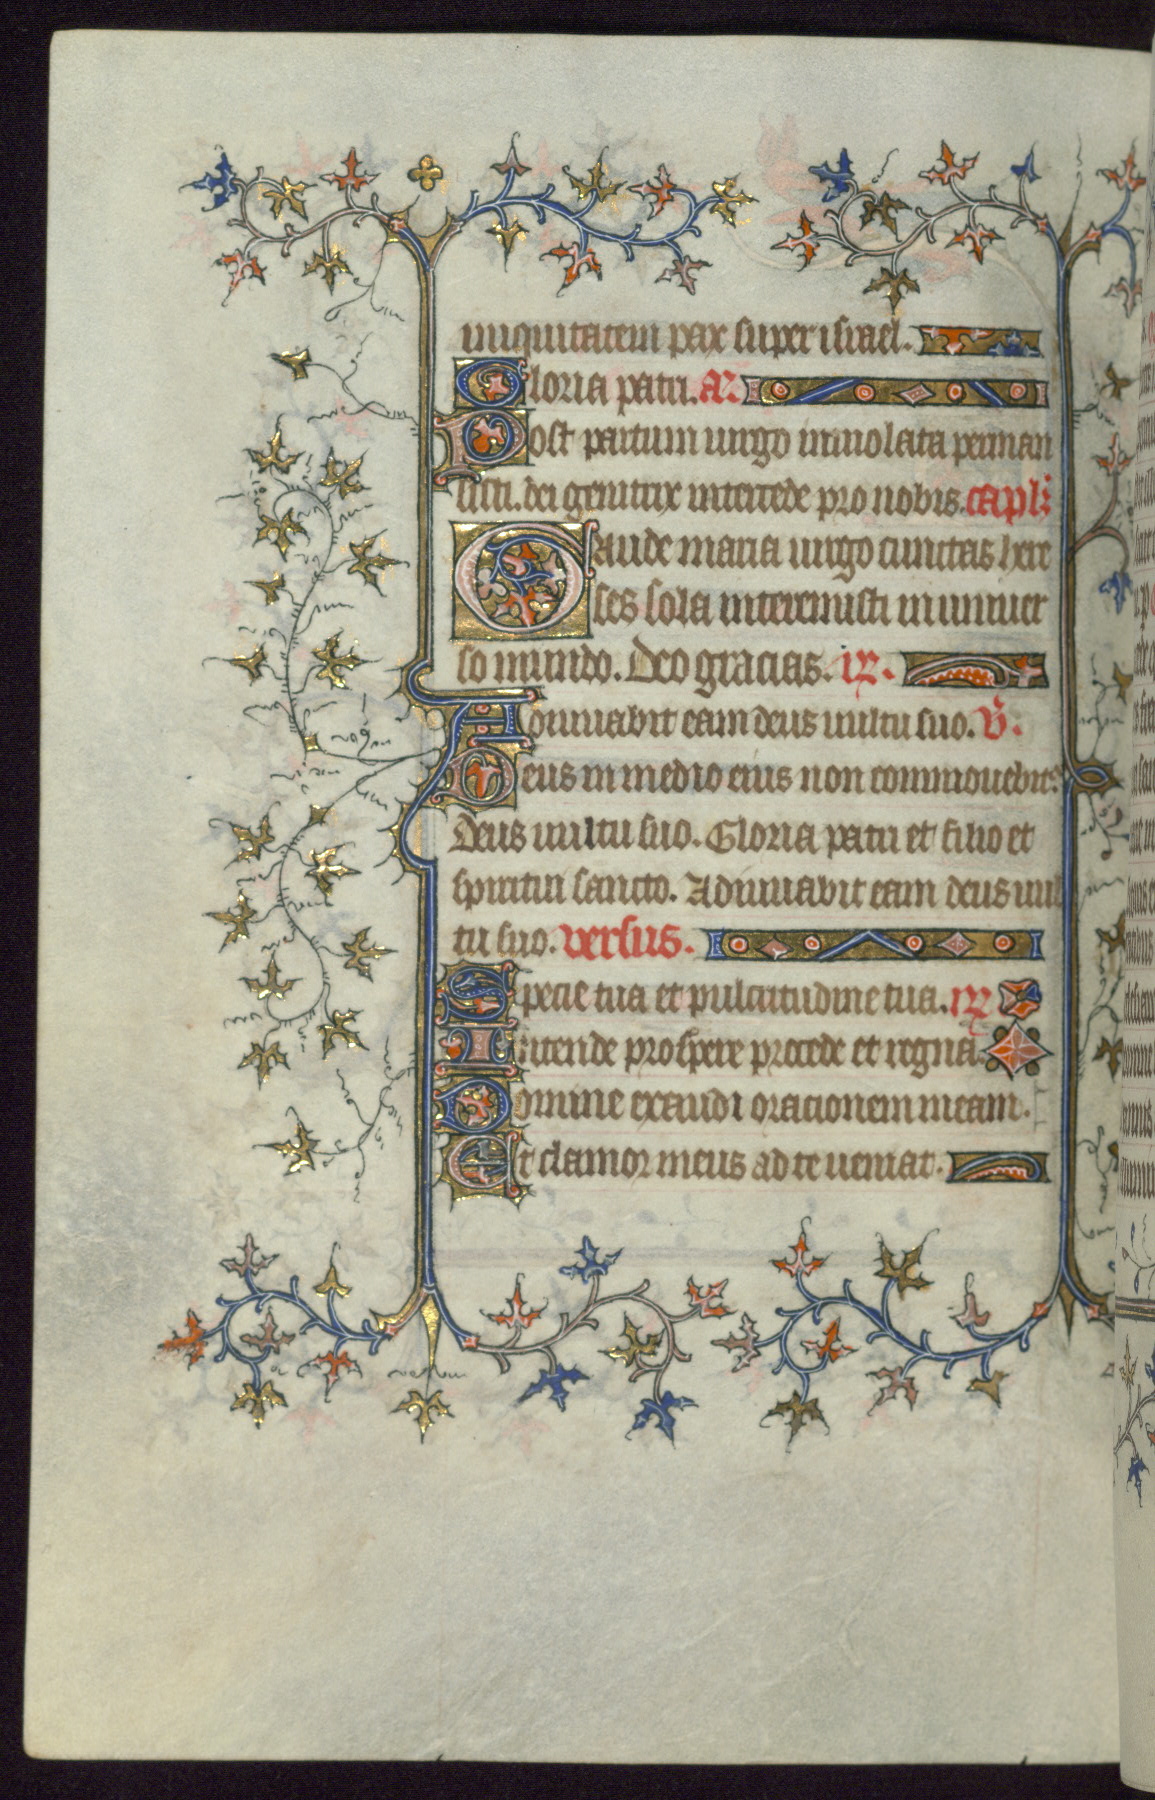 iniquitatem pax super israel.
Gloria patri. A'.
Post partum uirgo inuiolata perman
sisti. dei genitrix intercede pro nobis. capl'.
Gaude maria uirgo cunctas here
ses sola interemisti in uniuer
so mundo. Deo gracias. R.
Adiuuabit eam deus uultu suo. V.
Deus in medio eius non commouebit'.
Deus uultu suo. Gloria patri et filio et
spiritui sancto. Adiuuabit eam deus uul
tu suo. versus.
Specie tua et pulcritudine tua. R
Intende prospere procede et regna.
Domine exaudi orationem meam.
Et clamor meus ad te ueniat.